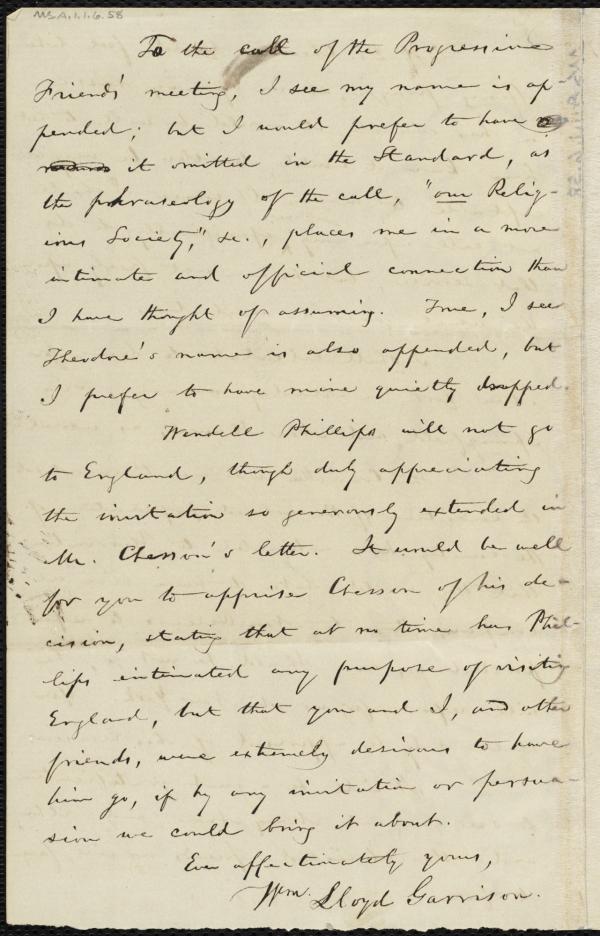 MS.A.1.1.6.58
To the call of the Progressive
Friends' meeting, I see my name is ap
pended; but I would prefer to have
it omitted in the Standard, as
the phraseology of the call, "our Relig-
ious Society," &c., places me in a more
intimate and official connection than
I have thought of assuming. True, I see
Theodore's name is also appended, but
I prefer to have mine quietly dropped.
Wendell Phillips will not go
to England, though duly appreciating
the invitation so generously extended in
Mr. Chesson's letter. It would be well
for you to apprise Chesson of his de-
cision, stating that at no time has Phil-
lips intimated any purpose of visiting
England, but that you and I, and other
friends, were extremely desirous to have
him go, if by any invitation or persua-
sion we could bring it about.
Ever affectionately yours,
Wm. Lloyd Garrison.